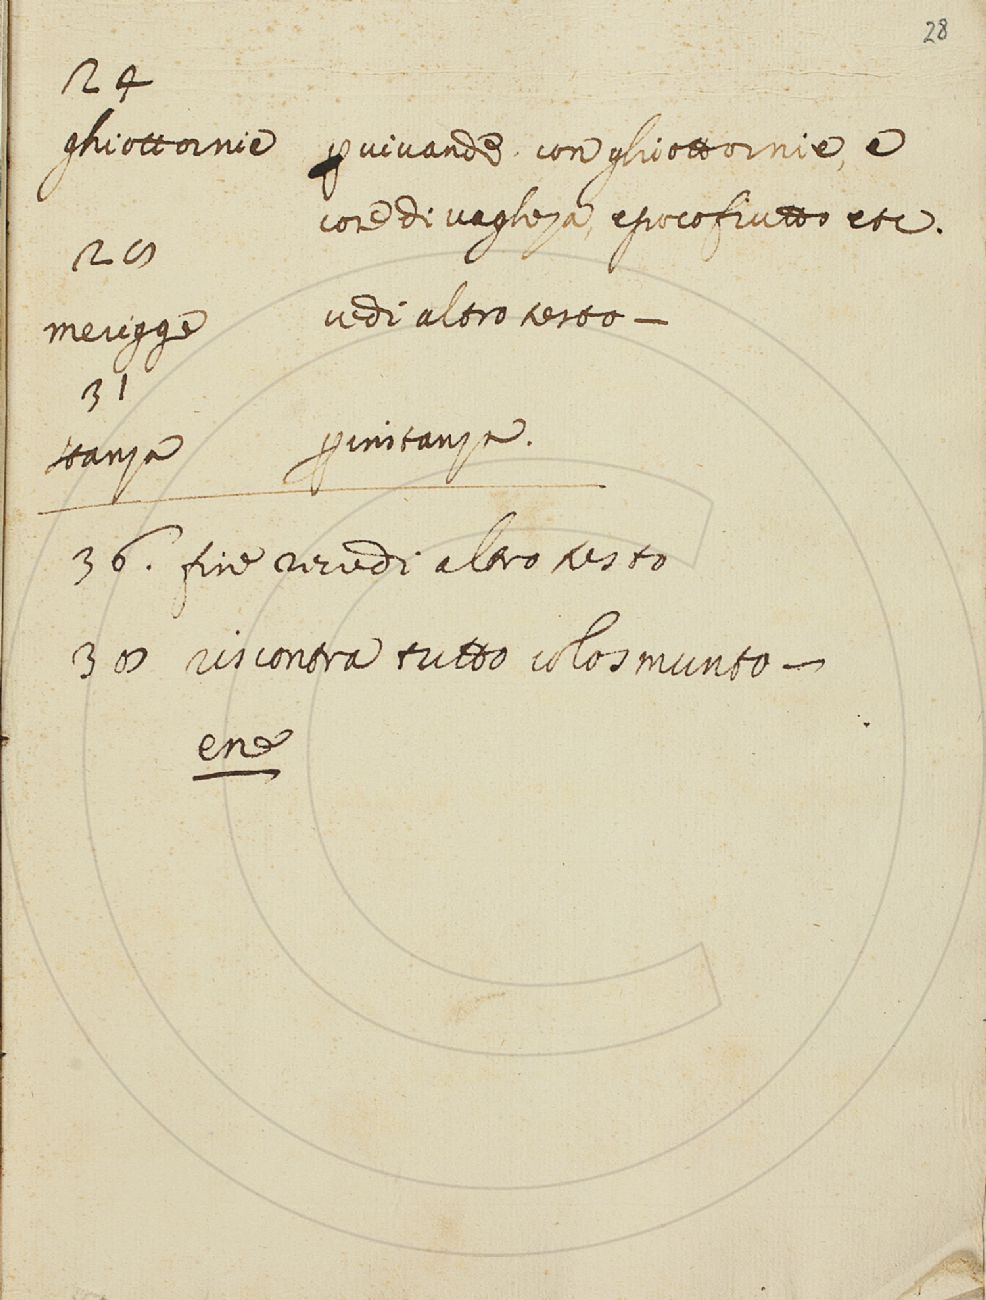 28
24
ghiottornie p vivande con ghiottornie, e
core di vagheza, e poco frutto etc.
28
merigge vedi altro testo —
31
stanza p inistanza.
36. fine rivedi altro testo
38 riscontra tutto colo smunto —
ene